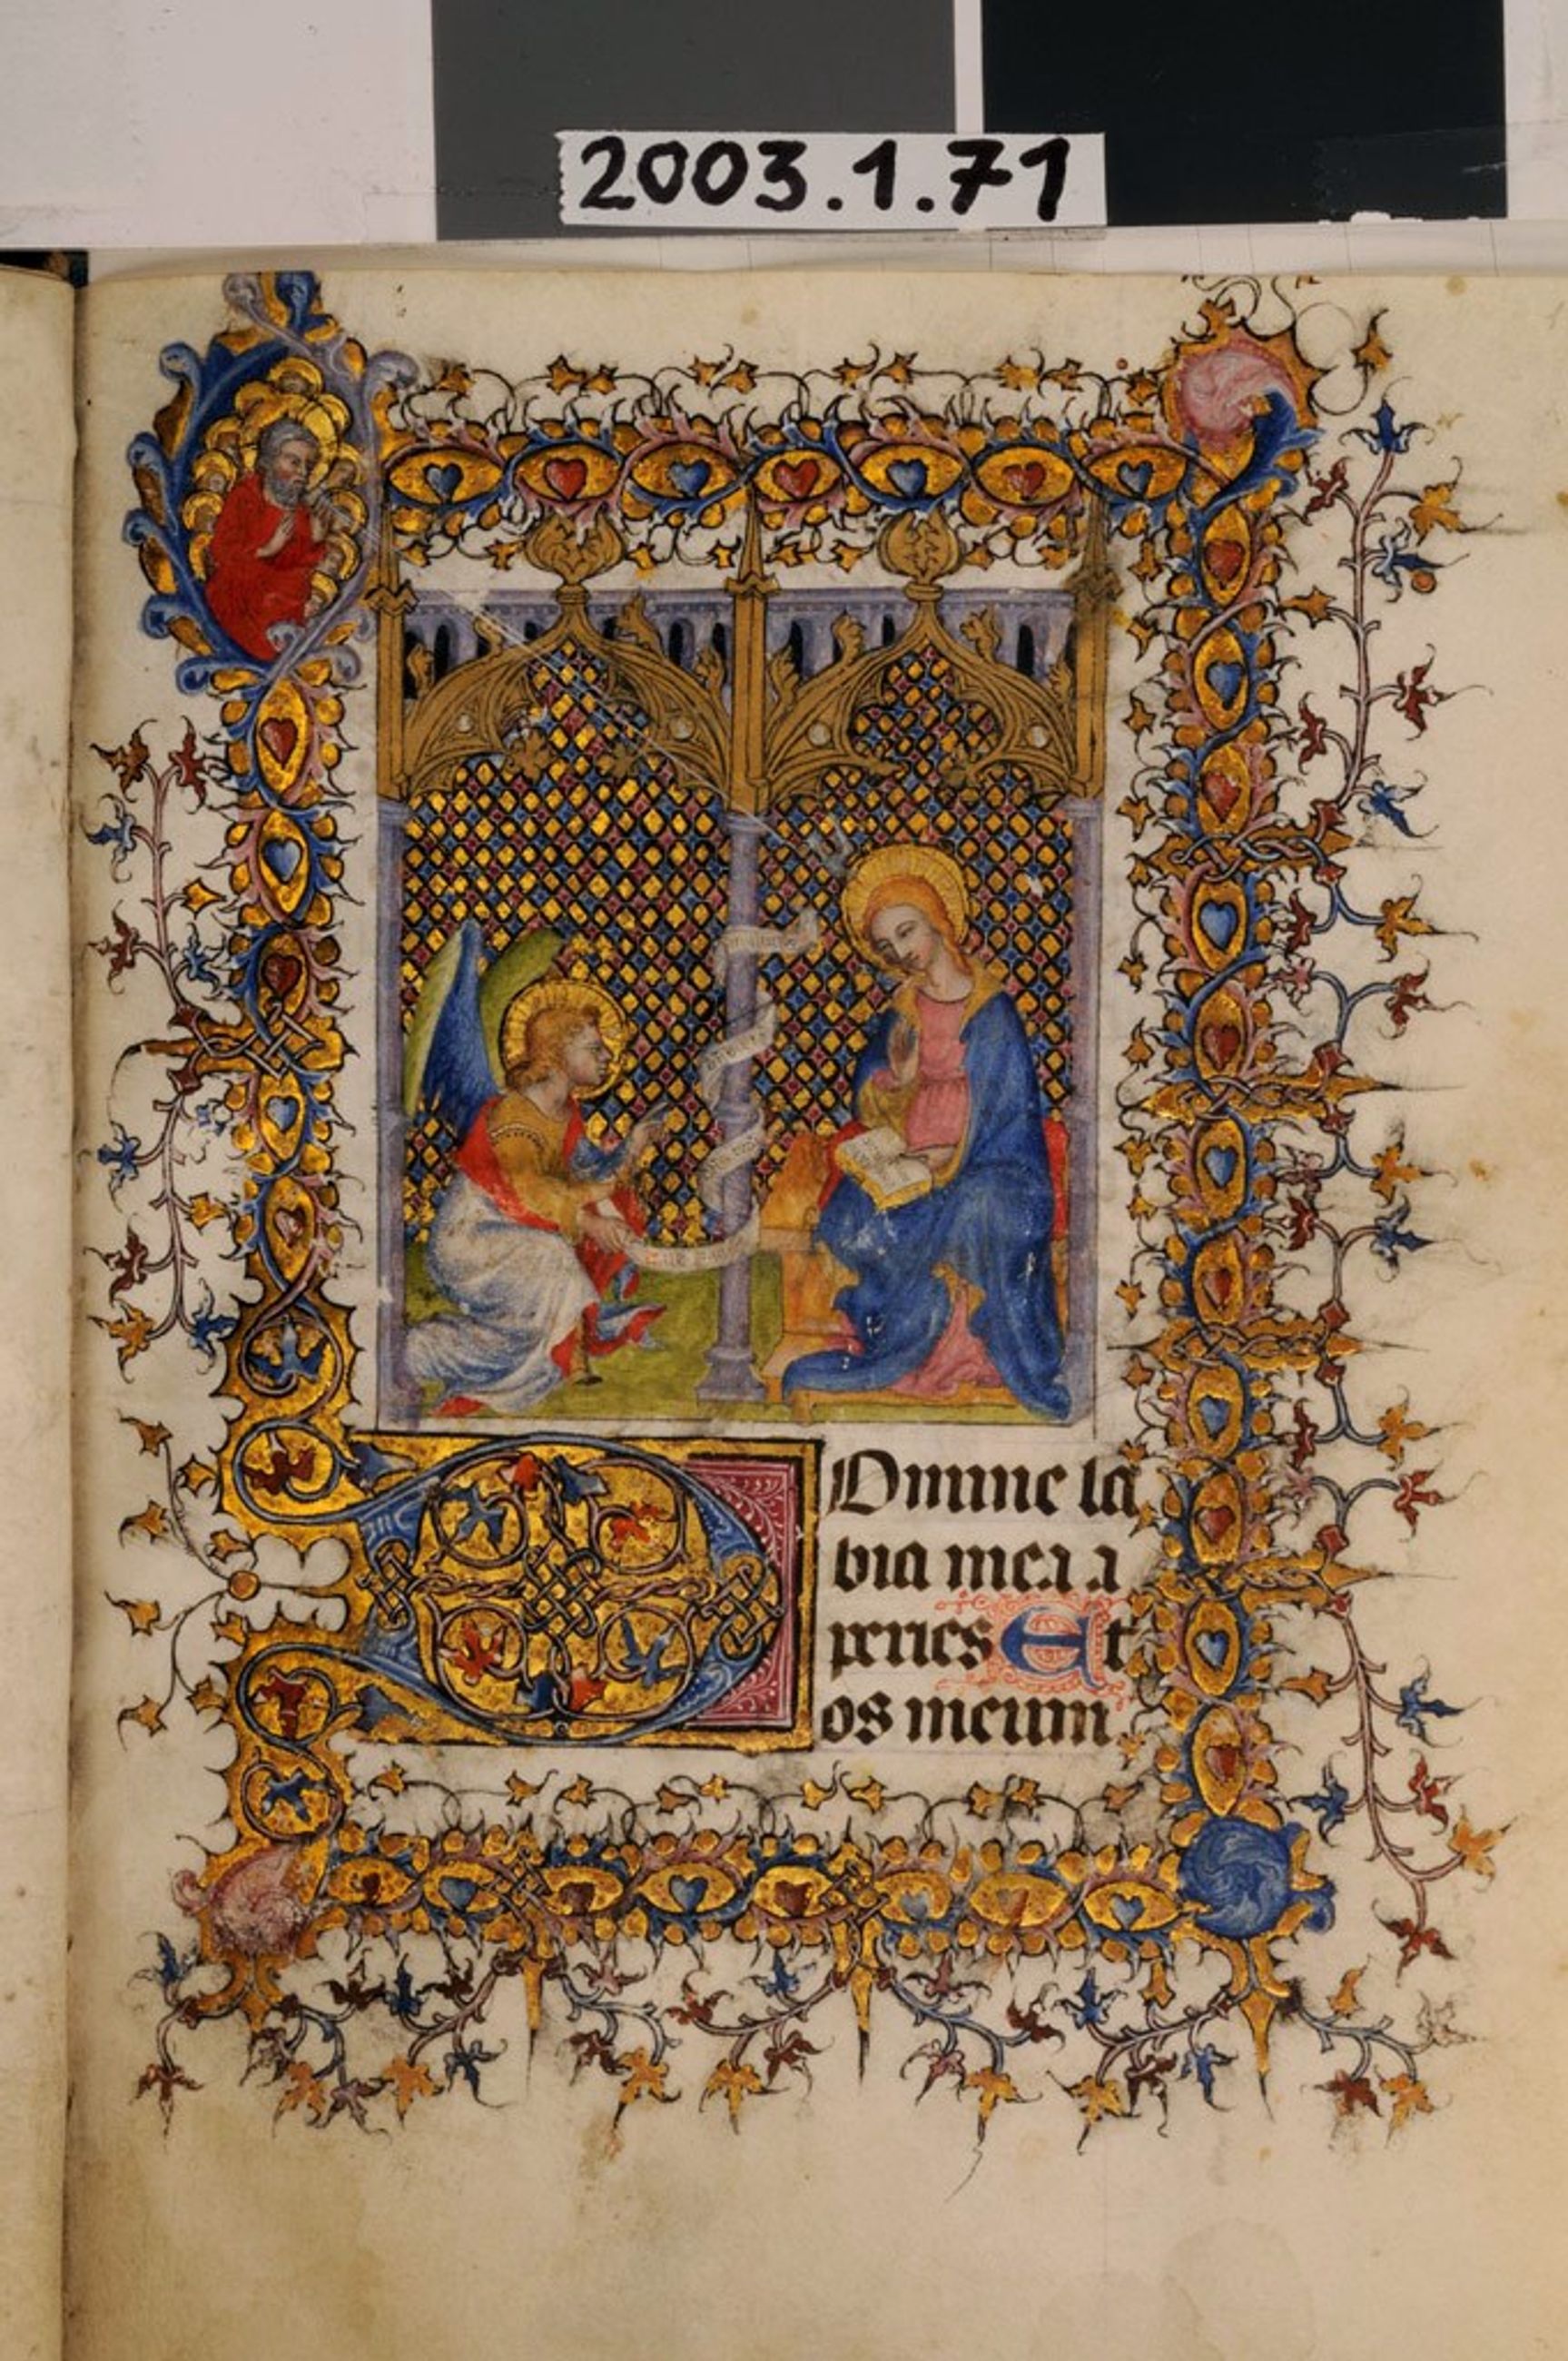 2003.1.71
Domine la
bia mea a
peries Et
os meum.